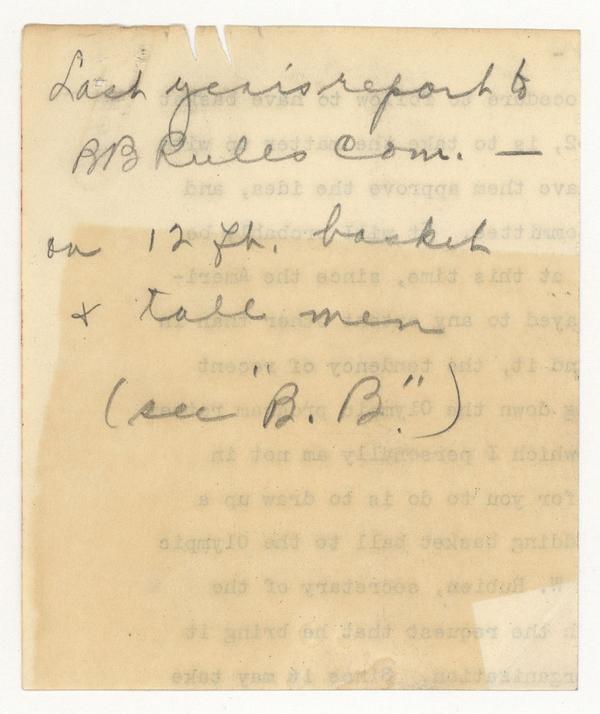 Last year's report to
BB Rules Com. —
on 12 ft. basket
& tall men
(see "B. B.")